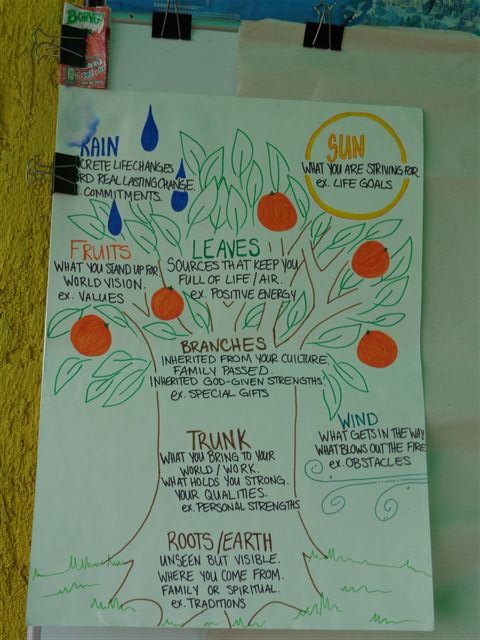 RAIN
CRETE LIFE CHANGES
RD REAL LASTING CHANGE.
COMMITMENTS.
SUN
WHAT YOU ARE STRIVING FOR
ex. LIFE GOALS
FRUITS
WHAT YOU STAND UP FOR
WORLD VISION.
ex. VALUES
LEAVES
SOURCES THAT KEEP YOU
FULL OF LIFE / AIR.
ex. POSITIVE ENERGY
BRANCHES
INHERITED FROM YOUR CULTURE.
FAMILY PASSED.
INHERITED GOD-GIVEN STRENGTHS.
ex. SPECIAL GIFTS
WIND
WHAT GETS IN THE WAY
WHAT BLOWS OUT THE FIRE
ex. OBSTACLES
TRUNK
WHAT YOU BRING TO YOUR
WORLD / WORK.
WHAT HOLDS YOU STRONG.
YOUR QUALITIES.
ex. PERSONAL STRENGTHS
ROOTS/EARTH
UNSEEN BUT VISIBLE.
WHERE YOU COME FROM.
FAMILY OR SPIRITUAL.
ex. TRADITIONS